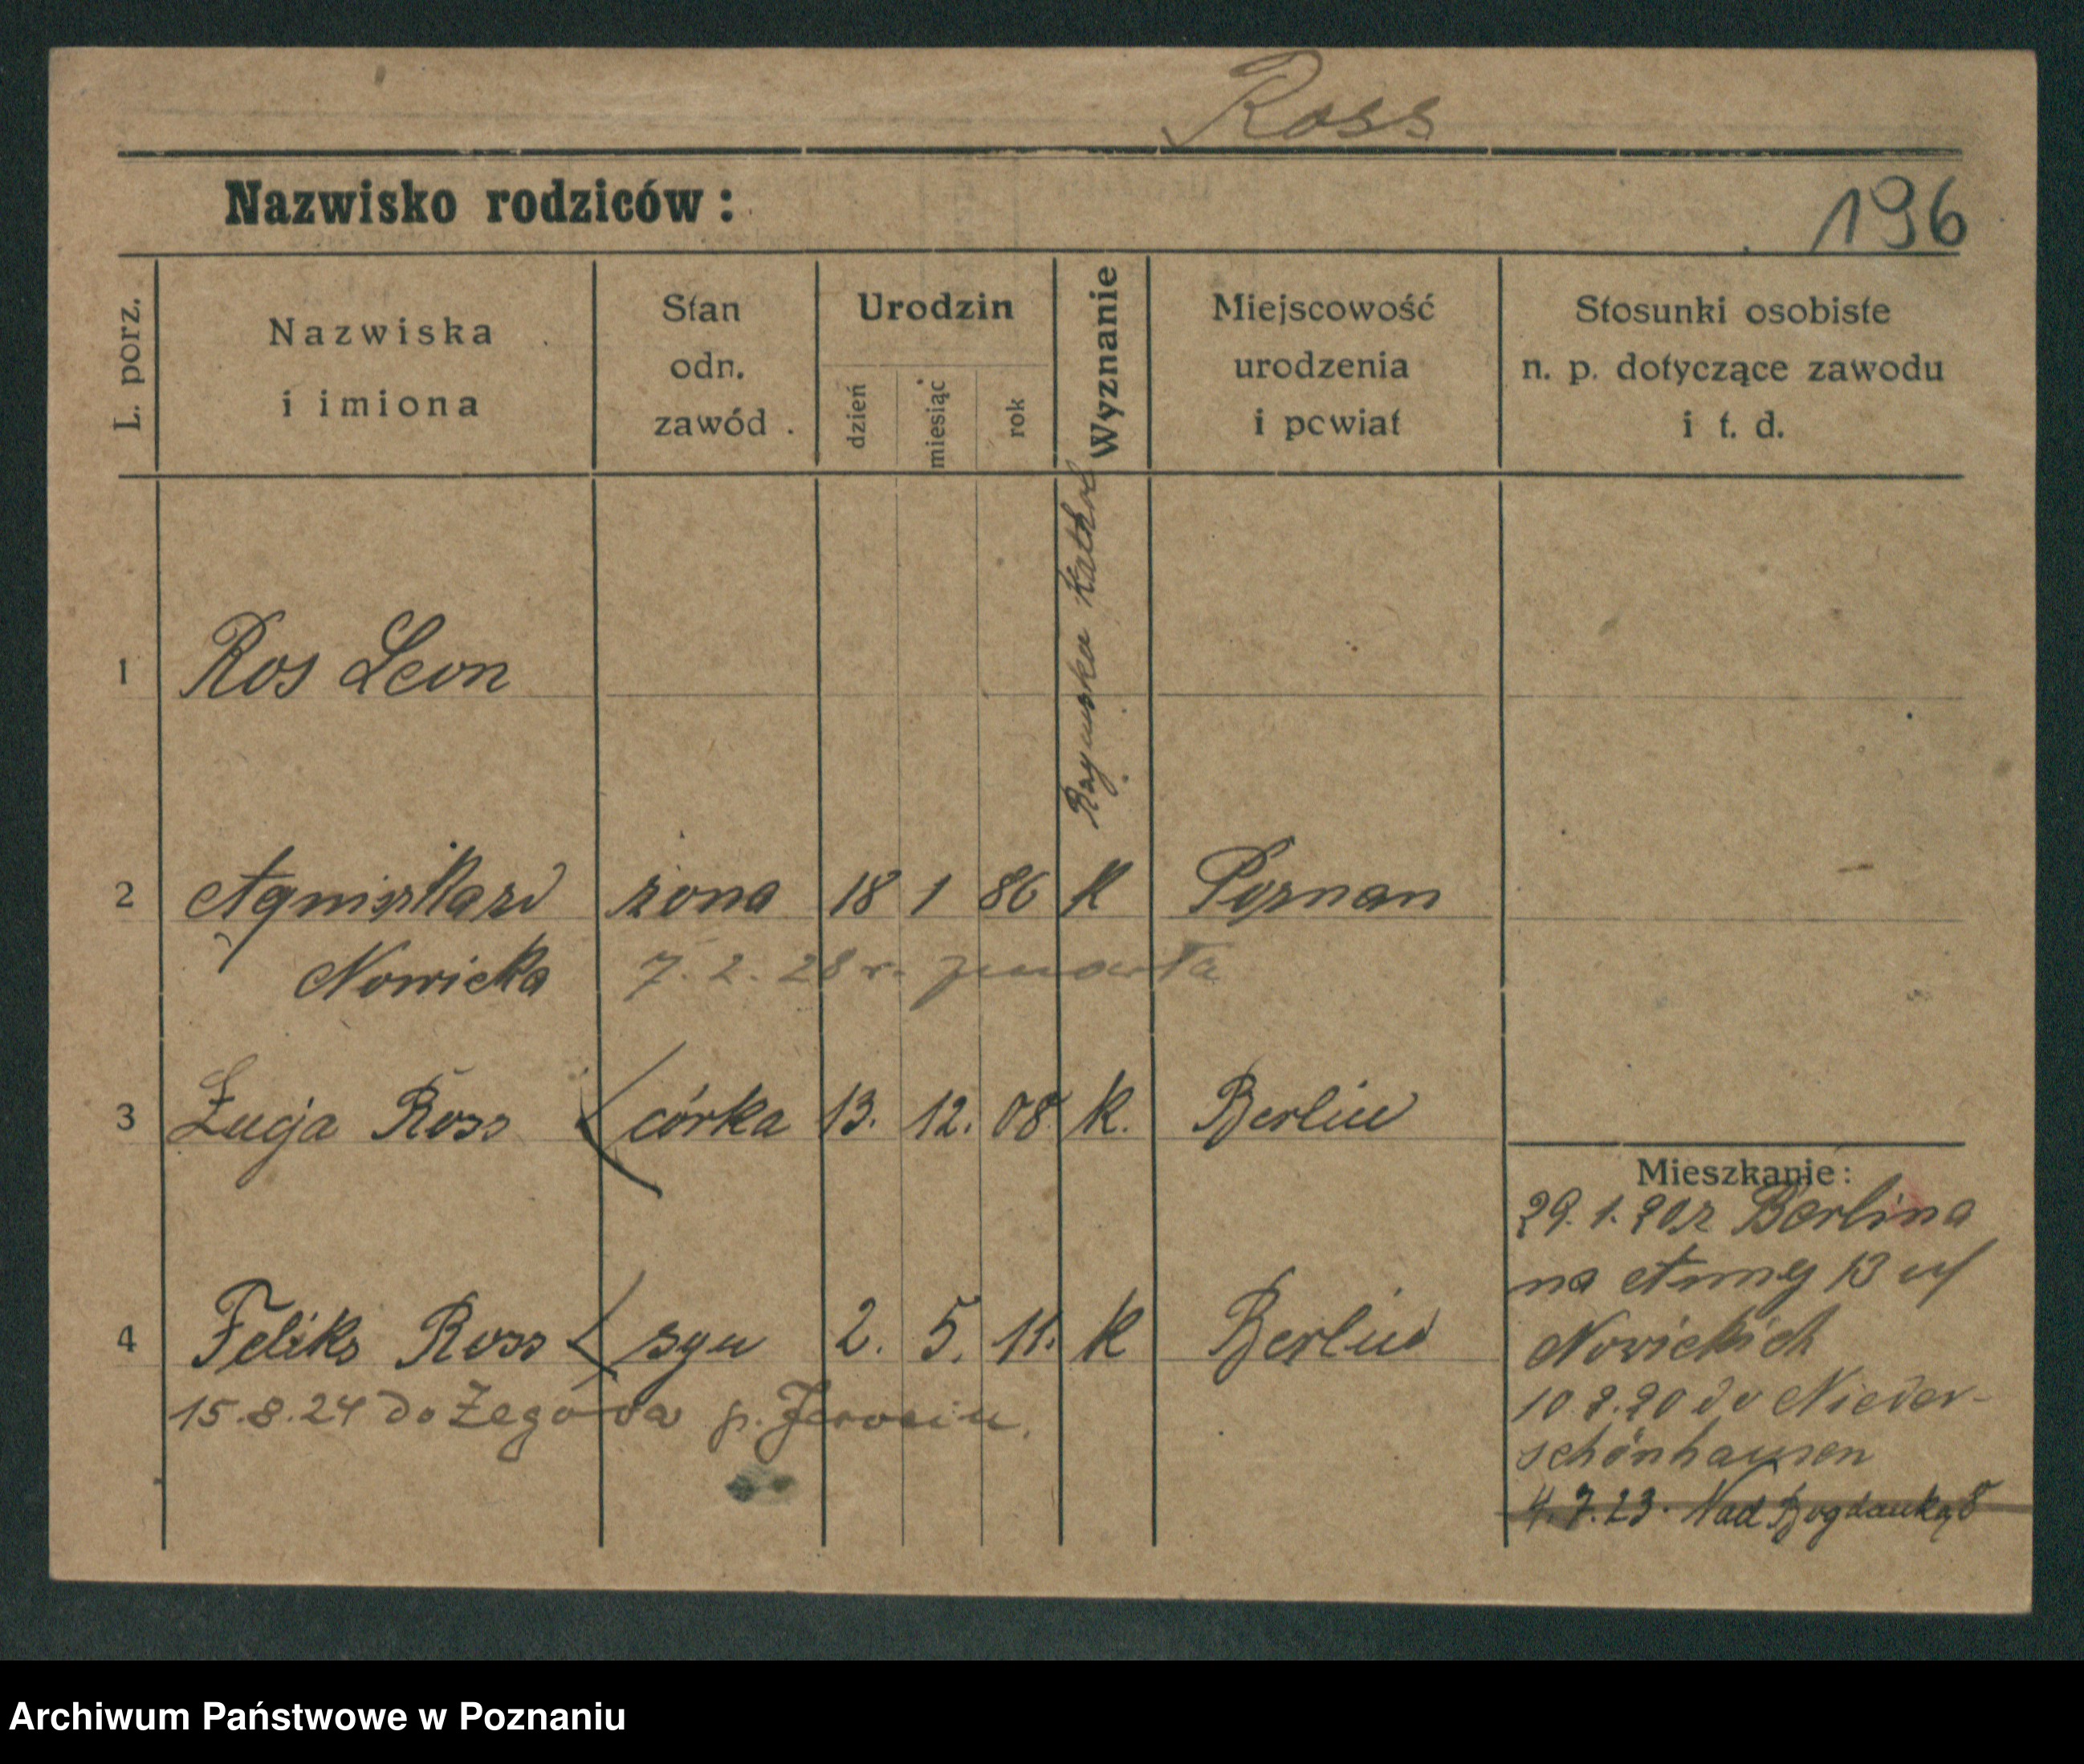 Ross
Nazwisko rodziców:
196
L. porz.
Nazwiska
i imiona
Stan
odn.
zawód
Urodzin
dzień
miesiąc
rok
Wyznanie
Miejscowość
urodzenia
i powiat
Stosunki osobiste
n. p. dotyczące zawodu
i t. d.
1 Ros Leon
Rzymska Kathol
2 żona 18 1 86 K Poznan
Nowicka 7. 2. 28 r. zmarła
3 Łucja Ross córka 13. 12. 08. K. Berlin
4 Feliks Ross syn 2. 5. 11. K Berlin
15.8.24 do p. Jarocin.
Mieszkanie:
29. 1. 20 z Berlina
na 13 u
Nowickich
do Nieder-
schönhausen
4. 7. 23. Nad Bogdanką 8
Archiwum Państwowe w Poznaniu